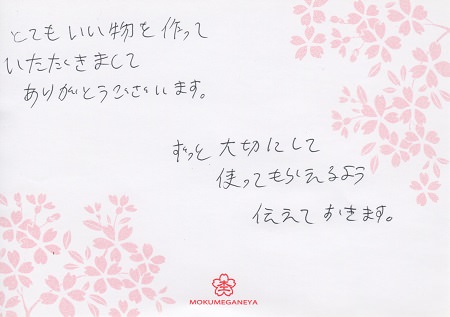 とてもいい物を作って
いただきまして
ありがとうございます。
ずっと大切にして
使ってもらえるよう
伝えておきます。
MOKUMEGANEYA